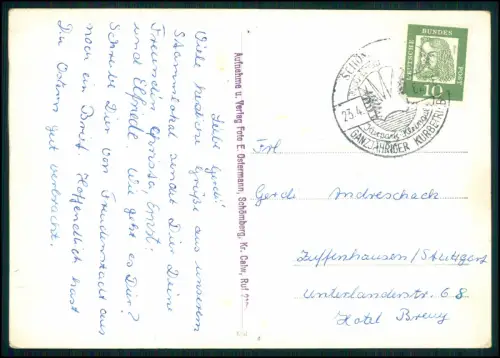 Liebe Gerdi!
Viele herzliche Grüße aus unserem
Stammlokal sendet Dir Deine
Freundin Christa Ernst
und Elfriede. Wie geht es Dir?
Schreibe Dir von Freudenstadt aus
noch ein Brief. Hoffentlich hast
Du Ostern gut verbracht.
Aufnahme u. Verlag Foto E. Ostermann, Schömberg, Kr. Calw, Ruf
DEUTSCHE BUNDESPOST
10
23.4.
GANZJÄHRIGER KURBETRIEB
Frl.
Gerdi Andreschack
Zuffenhausen/Stuttgart
Unterländerstr. 68
Hotel